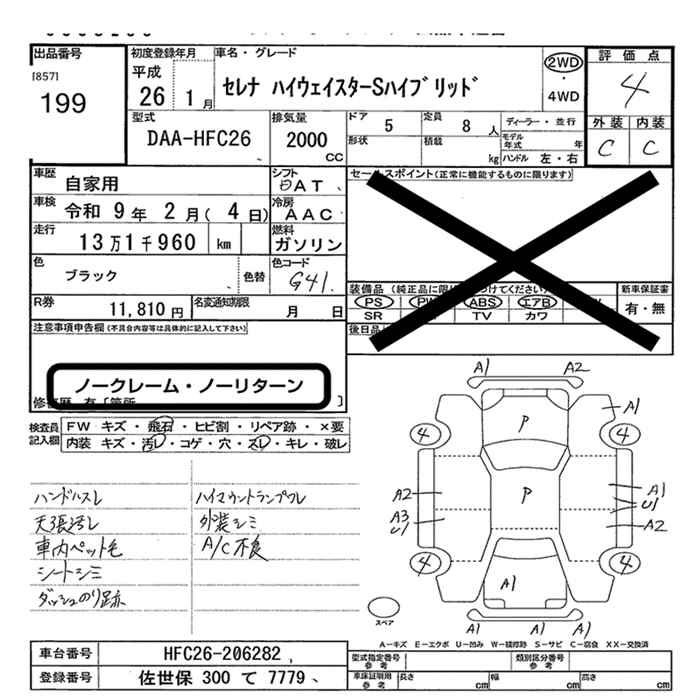 出品番号
[857]
199
初度登録年月
平成
26 1月
車名・グレード
セレナ ハイウェイスターSハイブリッド
2WD
・
4WD
評価点
4
外装 内装
C C
型式
DAA-HFC26
排気量
2000
CC
ドア
5
定員
8 人
形状
積載
kg
ディーラー・並行
モデル年式 年
ハンドル 左・右
車歴
自家用
シフト
DAT
車検
令和 9年 2月( 4日)
冷房
AAC
走行
13万1千960 km
燃料
ガソリン
色
ブラック
色替
色コード
G41.
R券
11,810 円
名変通知期限
月 日
セールスポイント(正常に機能するものに限ります)
装備品 (純正品に限り
つけてください)
PS PW ABS エアB
SR TV カワ
新車保証書
有・無
後日品
注意事項申告欄(不具合内容等は具体的に記入して下さい)
ノークレーム・ノーリターン
検査員
記入欄
FW キズ・飛石・ヒビ割・リペア跡・×要
内装 キズ・汚レ・コゲ・穴・スレ・キレ・破レ
ハンドルスレ
天張汚レ
車内ペット毛
シートシミ
ダッシュのり跡
ハイマウントランプワレ
外装シミ
A/C不良
A1 A2
A1
4 4
P
A2
P
A1
U1
A3
U1
A2
4 4
A1
A1 A1 A1
スペア
A−キズ E−エクボ U−凹み W−補修跡 S−サビ C−腐食 XX−交換済
車台番号
HFC26-206282
登録番号
佐世保 300 て 7779
型式指定番号
参考
類別区分番号
参考
車床証明用
参考
長さ cm
幅 cm
高さ cm